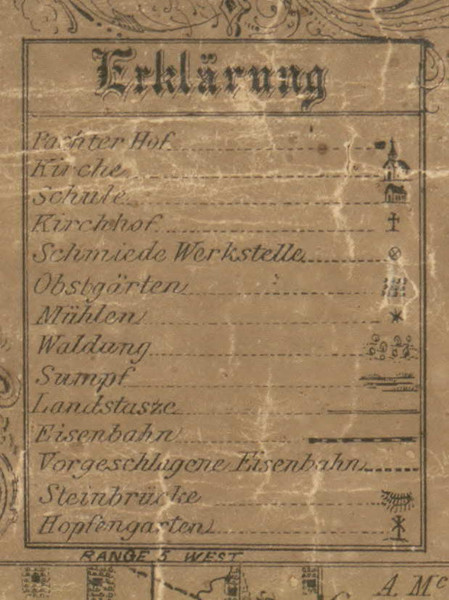 Erklärung
Pachter Hof
Kirche
Schule
Kirchhof
Schmiede Werkstelle
Obstgärten
Mühlen
Waldung
Sumpf
Landstasze
Eisenbahn
Vorgeschlagene Eisenbahn
Steinbrücke
Hopfengarten
RANGE 5 WEST
A. Mc